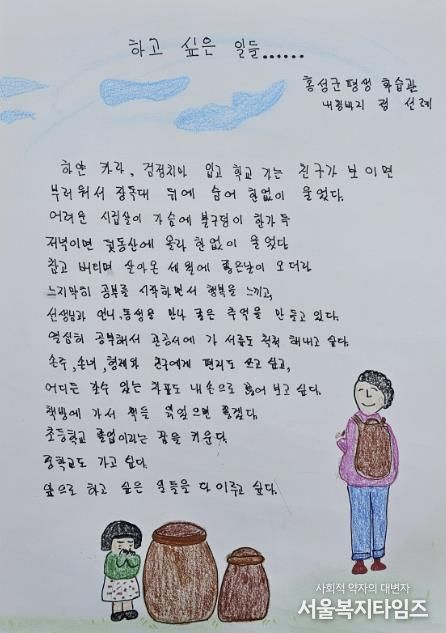 하고 싶은 일들......
홍성군 평생 학습관
내큼바지 정 선 례
하얀 카라, 검정치마 입고 학교 가는 친구가 보이면
부러워서 장독대 뒤에 숨어 한없이 울었다.
어려운 시집살이 가슴에 불구덩이 한가득
저녁이면 뒷동산에 올라 한없이 울었다
참고 버티며 살아온 세월에 좋은날이 오더라
느지막히 공부를 시작하면서 행복을 느끼고,
선생님과 언니, 동생을 만나 좋은 추억을 만들고 있다.
열심히 공부해서 관공서에 가 서류도 척척 해내고 싶다.
손주, 손녀, 형제와 친구에게 편지도 쓰고 싶고,
어디든 갈수 있는 차표도 내 손으로 끊어 보고 싶다.
책방에 가서 책을 읽었으면 좋겠다.
초등학교 졸업이라는 꿈을 키운다.
중학교도 가고 싶다.
앞으로 하고 싶은 일들을 다 이루고 싶다.
사회적 약자의 대변자
서울복지타임즈